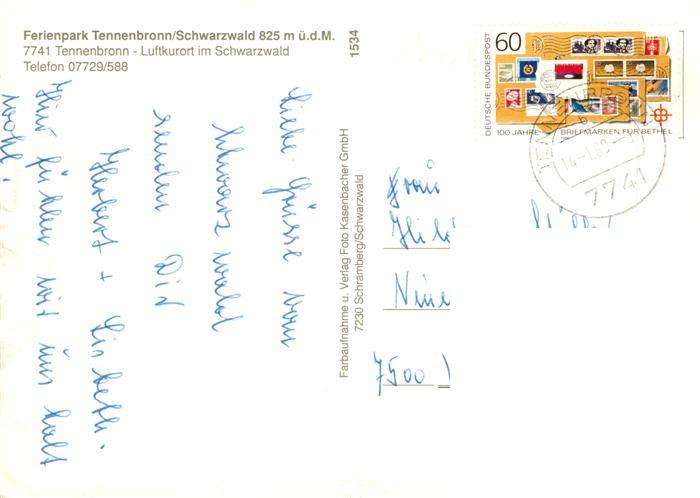 Ferienpark Tennenbronn/Schwarzwald 825 m ü.d.M.
7741 Tennenbronn - Luftkurort im Schwarzwald
Telefon 07729/588
1534
Liebe Grüsse vom
Schwarzwald
senden Dir
Herbert + Liesbeth.
Hier fühlen wir uns halt
wohl!
Farbaufnahme u. Verlag Foto Kasenbacher GmbH
7230 Schramberg/Schwarzwald
60
DEUTSCHE BUNDESPOST
100 JAHRE BRIEFMARKEN FÜR BETHEL
7741
Frau
7500